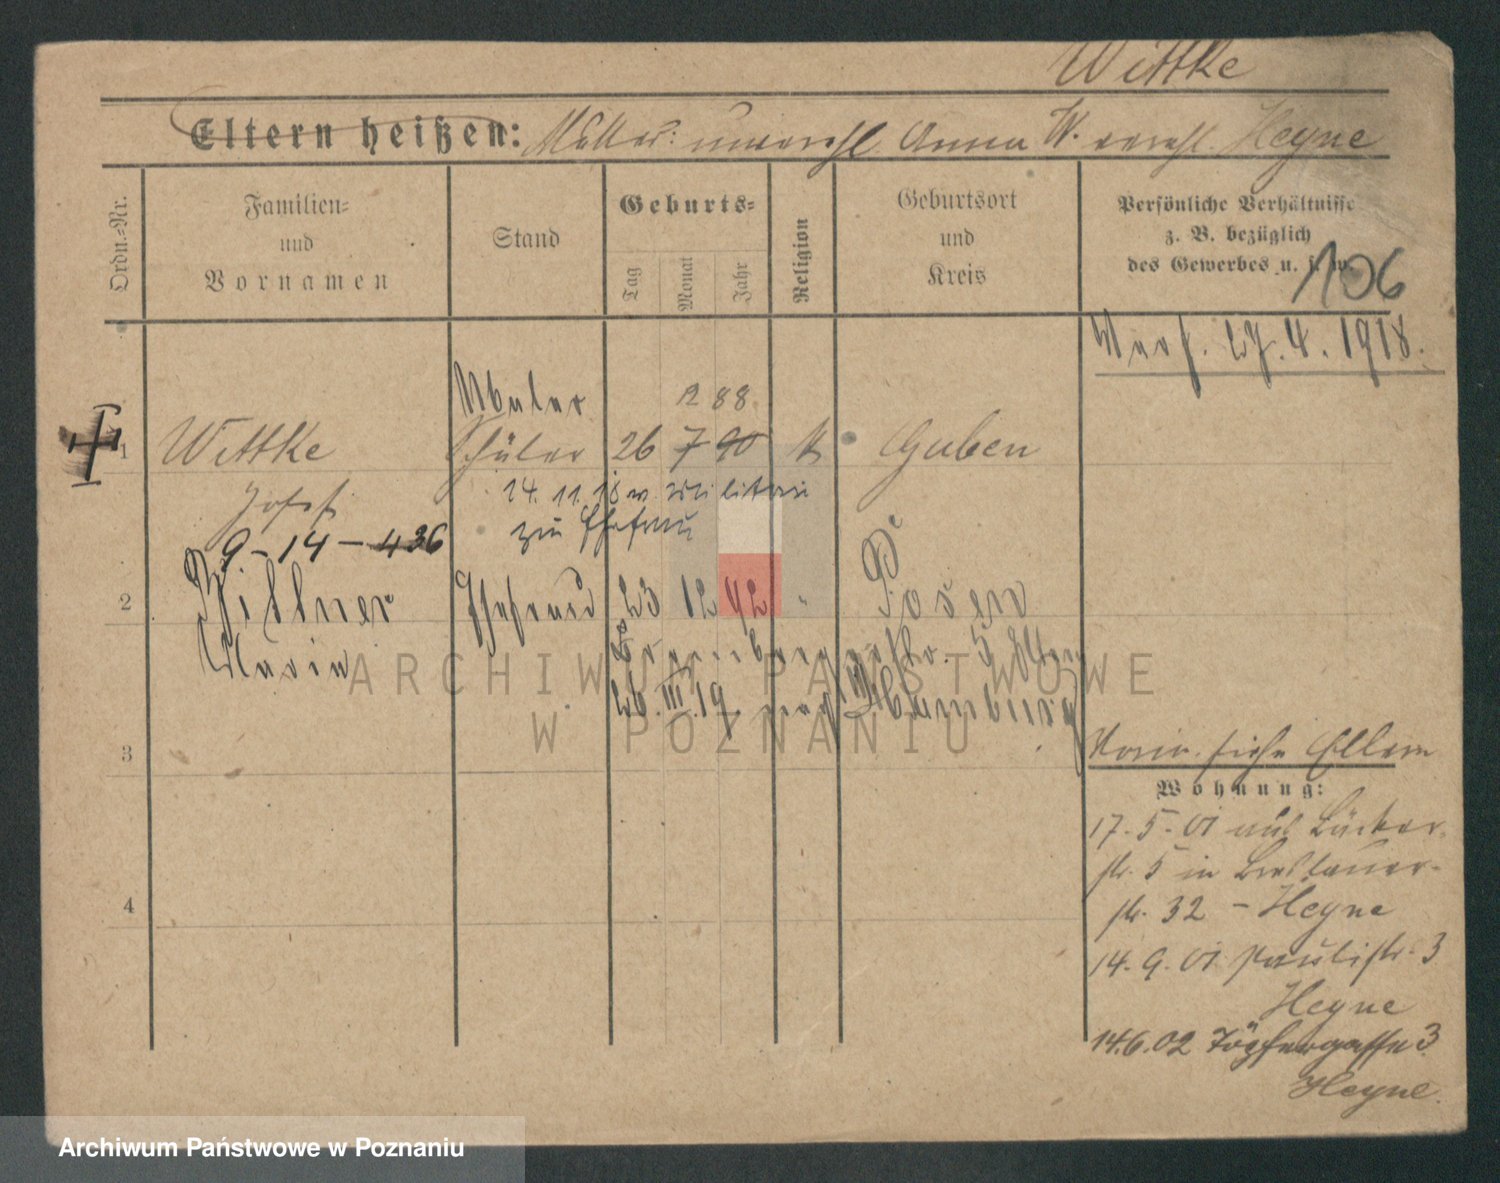 Wittke
Eltern heißen: Mutter: unverehl. Anna W. verehl. Heyne
Ordn.-Nr.
Familien-
und
Vornamen
Stand
Geburts-
Tag
Monat
Jahr
Religion
Geburtsort
und
Kreis
Persönliche Verhältnisse
z. B. bezüglich
des Gewerbes u. s. w.
106
27. 4. 1918.
88
1 Wittke Schüler 26 7 90 k Guben
Josef
14. 11. 18 v. Militär
zur Ehefrau
9-14-436
2 Ehefrau 23 12 92 " Posen
Maria
26. III. 19. Hamburg
3
siehe Eltern
Wohnung:
17. 5. 01 aus
str. 5 in Breslauer-
str. 32 - Heyne
14. 9. 01 Paulistr. 3
Heyne
14.6.02 Töpfergasse 3
Heyne.
4
ARCHIWUM PAŃSTWOWE
W POZNANIU
Archiwum Państwowe w Poznaniu